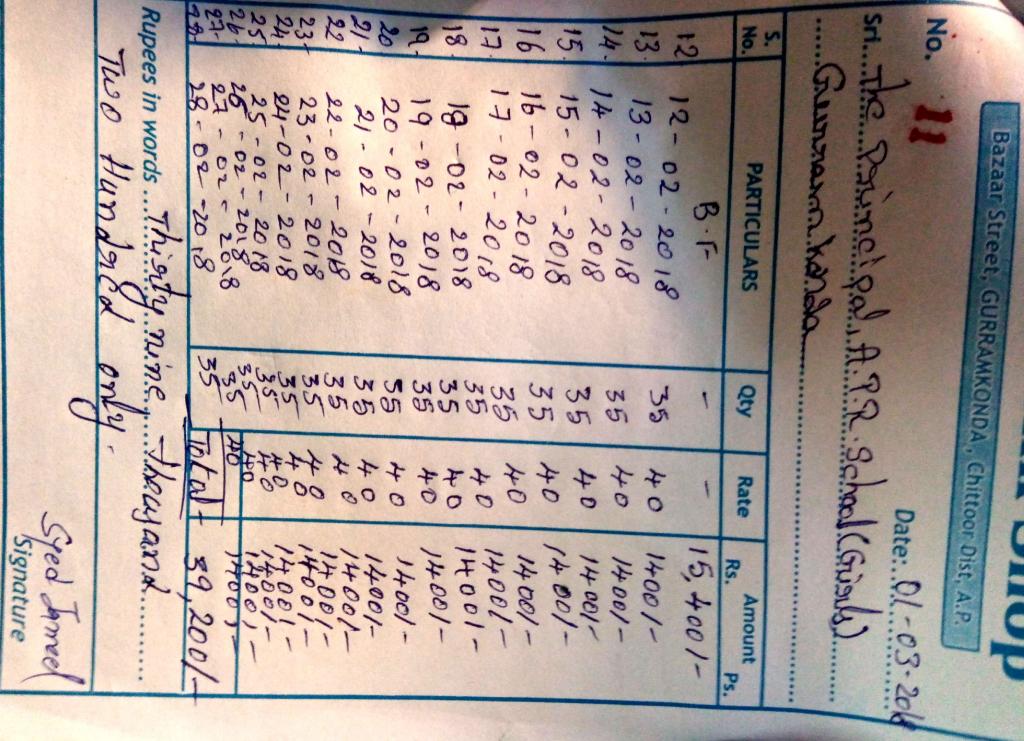 Shop
Bazaar Street, GURRAMKONDA, Chittoor Dist. A.P.
No. 11 Date: 01-03-2018
Sri. The Principal, A.P.R. School (Girls)
Gurramkonda
S. No. PARTICULARS Qty Rate Amount Rs. Ps.
B.F - - 15,400/-
12 12-02-2018 35 40 1400/-
13 13-02-2018 35 40 1400/-
14. 14-02-2018 35 40 1400/-
15. 15-02-2018 35 40 1400/-
16 16-02-2018 35 40 1400/-
17 17-02-2018 35 40 1400/-
18 18-02-2018 35 40 1400/-
19. 19-02-2018 35 40 1400/-
20 20-02-2018 35 40 1400/-
21. 21-02-2018 35 40 1400/-
22 22-02-2018 35 40 1400/-
23. 23-02-2018 35 40 1400/-
24. 24-02-2018 35 40 1400/-
25. 25-02-2018 35 40 1400/-
26. 26-02-2018 35 40 1400/-
27. 27-02-2018 35 40 1400/-
28. 28-02-2018 35 40 1400/-
Total - 39,200/-
Rupees in words Thirty nine Thousand
Two Hundred only.
Syed Jameel
Signature